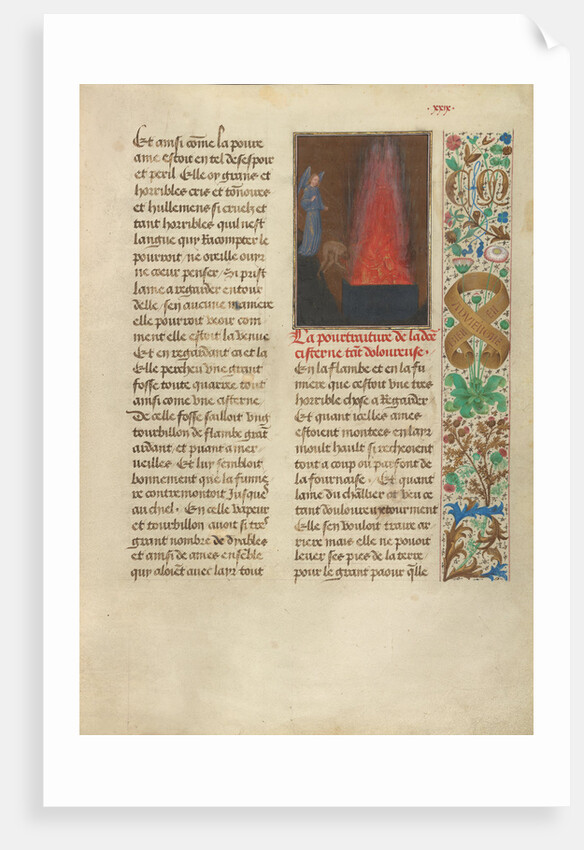 ·xxix·
Et ainsi cōme la poure
ame estoit en tel desespoir
et peril Elle oy grans et
horribles cris et tōnoires
et hullemens si cruelz et
tant horribles quil nest
langue qui Racompter le
pourroit / ne oreille ouir
ne coeur penser / Si prist
lame a regarder entour
delle / sen aucune maniere
elle pourroit veoir com
ment elle estoit la venue
Et en regardant ca et la
Elle percheu vne grant
fosse toute quarree tout
ainsi come vne cisterne
De celle fosse sailloit vng
tourbillon de flambe grāt
ardant / et puant a mer
veilles Et luy sembloit
bonnement que la fumee
re contremontoit Jusques
au chiel · En celle vapeur
et tourbillon auoit si tres
grant nombre de dyables
et ainsi de ames ensēble
quy aloiēt auec layr tout
La pourtraiture de la dcē
cisterne tāt doloureuse ·
En la flambe et en la fu
miere que cestoit vne tres
horrible chose a Regarder
Et quant icelles ames
estoient montees en layr
moult hault si recheoient
tout a coup ou parfont de
la fournaise · Et quant
lame du chl̄lier eut veu ce
tant douloureux tourment
Elle sen vouloit traire ar
riere mais elle ne pouoit
leuer ses pies de la terre
pour le grant paour q̄lle